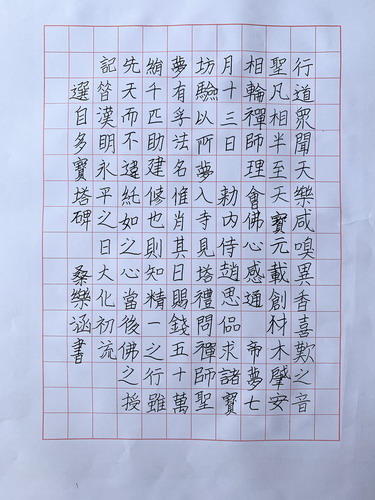 行道眾聞天樂咸嗅異香喜歎之音
聖凡相半至天寶元載創材木肇安
相輪禪師理會佛心感通 帝夢七
月十三日 勅內侍趙思侃求諸寶
坊驗以所夢入寺見塔禮問禪師聖
夢有孚法名惟肖其日賜錢五十萬
絹千匹助建修也則知精一之行雖
先天而不違純如之心當後佛之授
記昔漢明永平之日大化初流
選自多寶塔碑 桑樂涵書